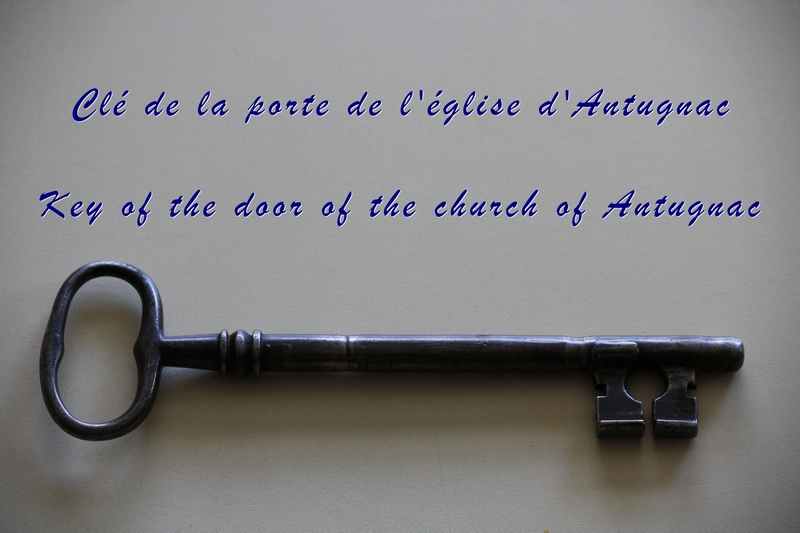 Clé de la porte de l'église d'Antugnac
Key of the door of the church of Antugnac